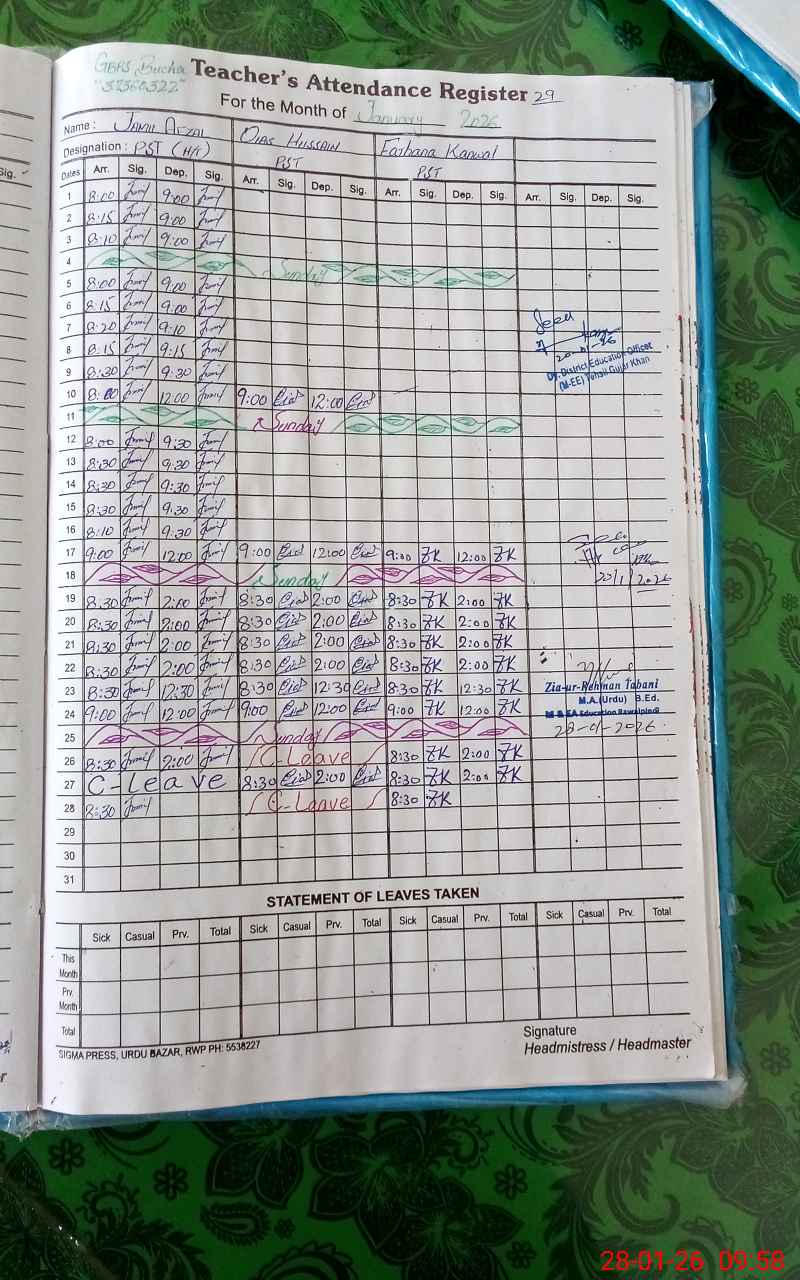 GBPS Bucha Teacher's Attendance Register 29
"37360322"
For the Month of January 2026
Name : Jamil Afzal Qias Hussain Farhana Kanwal
Designation : PST (H/t) PST PST
Dates Arr. Sig. Dep. Sig. Arr. Sig. Dep. Sig. Arr. Sig. Dep. Sig. Arr. Sig. Dep. Sig.
1 8:00 9:00
2 8:15 9:00
3 8:10 9:00
4 Sunday
5 8:00 9:00
6 8:15 9:00
7 8:20 9:10
8 8:15 9:15
9 8:30 9:30
10 8:00 12:00 9:00 12:00
11 Sunday
12 8:00 9:30
13 8:30 9:30
14 8:30 9:30
15 8:30 9:30
16 8:10 9:30
17 9:00 12:00 9:00 12:00 9:00 FK 12:00 FK
18 Sunday
19 8:30 2:00 8:30 2:00 8:30 FK 2:00 FK
20 8:30 2:00 8:30 2:00 8:30 FK 2:00 FK
21 8:30 2:00 8:30 2:00 8:30 FK 2:00 FK
22 8:30 2:00 8:30 2:00 8:30 FK 2:00 FK
23 8:30 12:30 8:30 12:30 8:30 FK 12:30 FK
24 9:00 12:00 9:00 12:00 9:00 FK 12:00 FK
25 Sunday
26 8:30 2:00 C-Leave 8:30 FK 2:00 FK
27 C-Leave 8:30 2:00 8:30 FK 2:00 FK
28 8:30 C-Leave 8:30 FK
29
30
31
Seen
Dy. District Education Officer
(M-EE) Tehsil Gujar Khan
20/1/2026
Zia-ur-Rehman Tabani
M.A.(Urdu) B.Ed.
M & EA Education Rawalpindi
28-01-2026
STATEMENT OF LEAVES TAKEN
Sick Casual Prv. Total Sick Casual Prv. Total Sick Casual Prv. Total Sick Casual Prv. Total
This Month
Prv. Month
Total
SIGMA PRESS, URDU BAZAR, RWP PH: 5538227
Signature
Headmistress / Headmaster
28-01-26 09:58